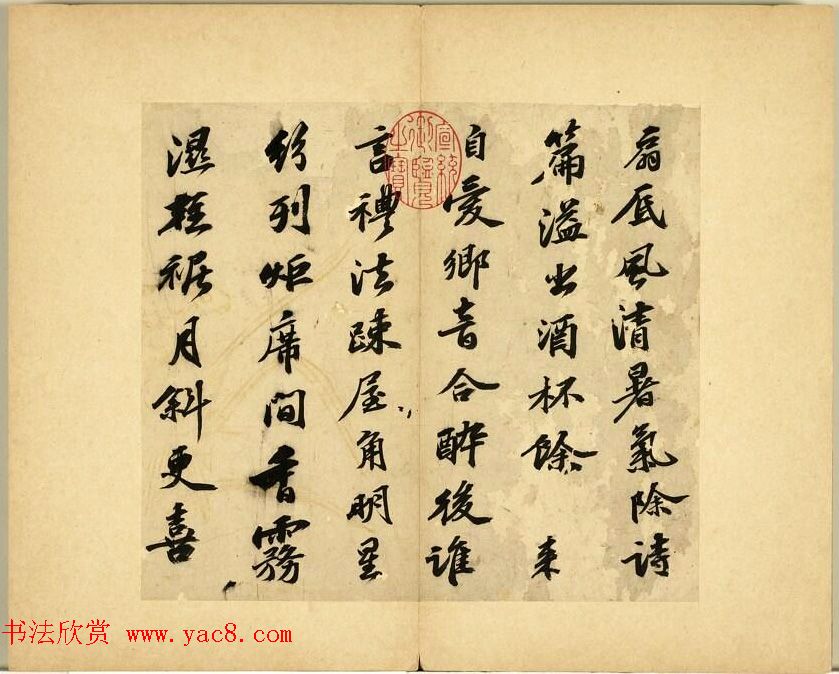 扇底風清暑氣除詩
篇溢出酒杯餘 来
自愛鄉音合醉後誰
言禮法踈屋角明星
紛列炬席間香霧
濕輕裾月斜更喜
宣統御覽之寶
书法欣赏 www.yac8.com